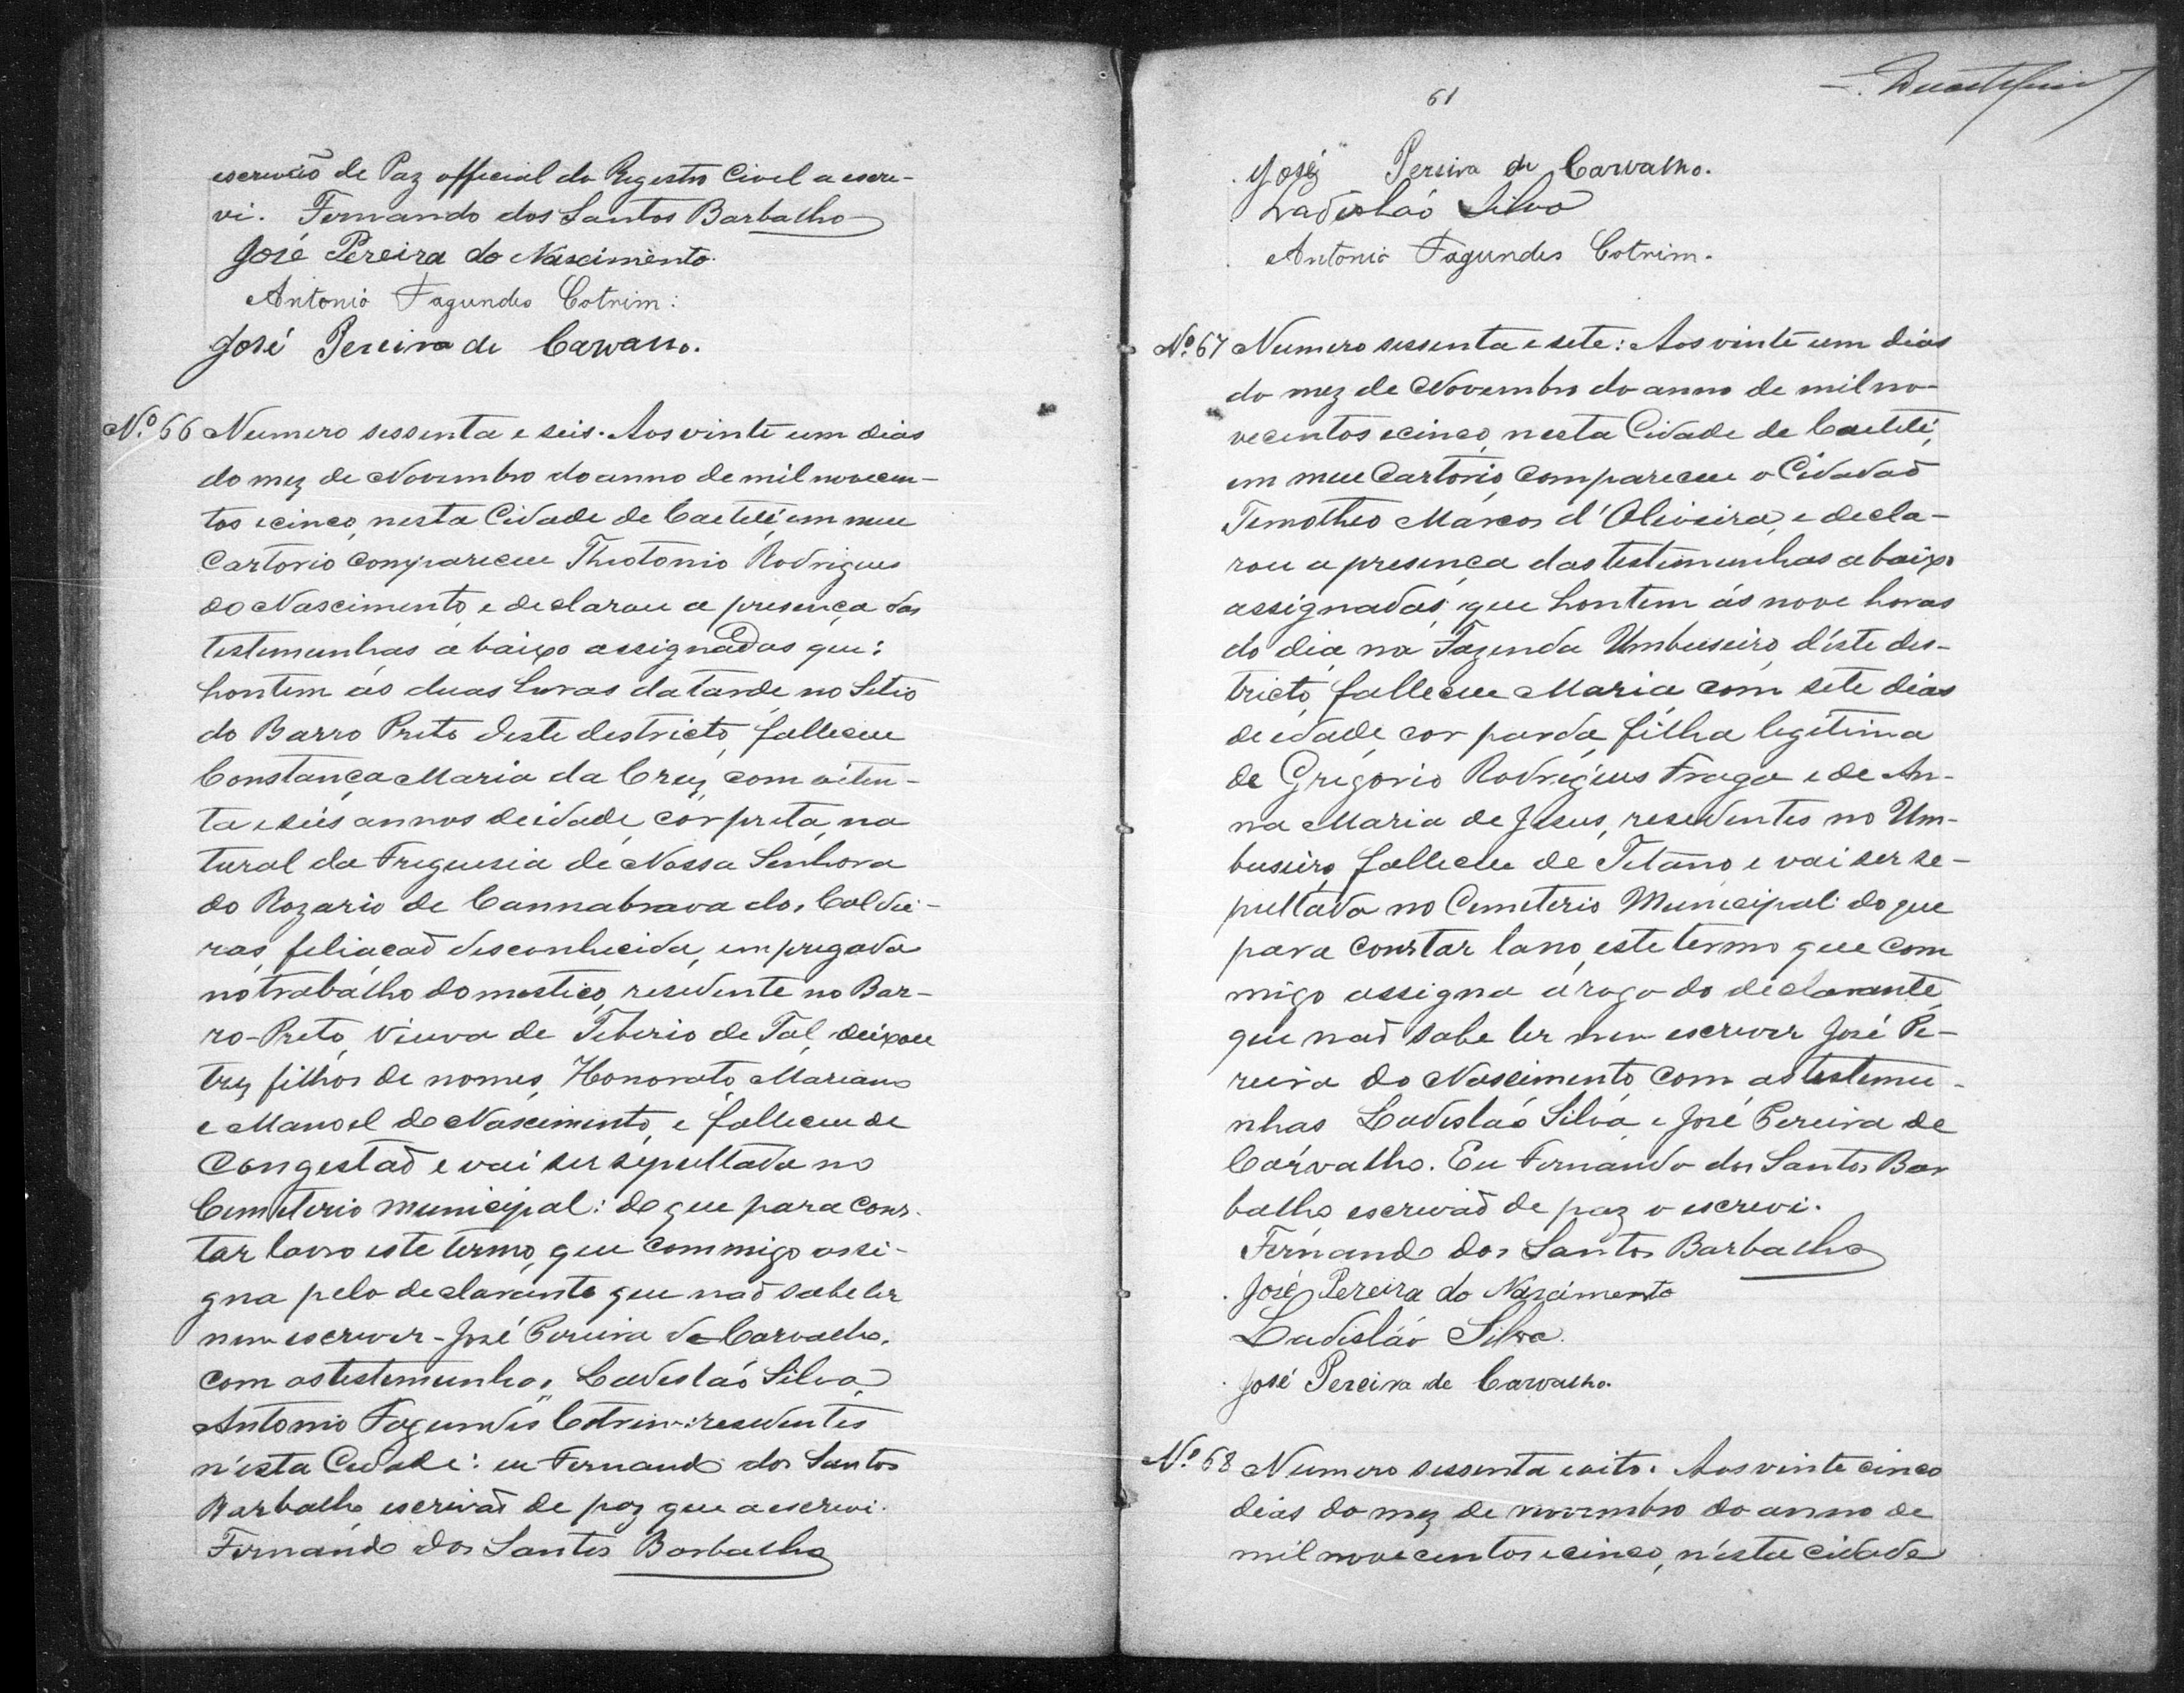 escrivão de Paz official do Registro Civel a escre-
vi. Fernando dos Santos Barbalho
José Pereira do Nascimento.
Antonio Fagundes Cotrim:
José Pereira de Carvalho.
Nº 66 Numero sessenta e seis. Aos vinte um dias
do mez de Novembro do anno de mil novecen-
tos e cinco, nesta Cidade de Caetité, em meu
Cartorio compareceu Theotonio Rodrigues
do Nascimento, e declarou a presença das
testemunhas abaixo assignadas que:
hontem ás duas horas da tarde, no Sitio
do Barro Preto deste destricto, falleceu
Constança Maria da Cruz, com oiten-
ta e seis annos de idade, cor preta, na
tural da Freguesia de Nossa Senhora
do Rozario de Cannabrava dos Caldei-
ras, feliacaõ desconhecida, empregada
no trabalho domestico, residente no Bar-
ro-Preto, Viuva de Tiberio de Tal, deixou
trez filhos de nomes, Honorato, Mariano
e Manoel do Nascimento, e falleceu de
Congestaõ e vai ser sepultada no
Cemiterio municipal: do que para cons-
tar lavro este termo, que commigo assi-
gna pelo declarante que naõ sabe ler
nem escrever - José Pereira de Carvalho,
com as testemunhas Ladislaó Silva,
Antonio Fagundes Cotrim: residentes
n'esta Cidade: eu Fernando dos Santos
Barbalho escrivaõ de paz que a escrevi.
Fernando dos Santos Barbalho
61
José Pereira de Carvalho.
Ladisláo Silva
Antonio Fagundes Cotrim.
Nº 67 Numero sessenta e sete: Aos vinte um dias
do mez de Novembro do anno de mil no-
vecentos e cinco, nesta Cidade de Caetité,
em meu Cartorio, compareceu o Cidadaõ
Timotheo Marcos d'Oliveira, e decla-
rou a presença das testemunhas abaixo
assignadas, que hontem ás nove horas
do dia, na Fazenda Umbuseiro, d'este des-
tricto, falleceu Maria com sete dias
de edade, cor parda, filha legitima
de Gregorio Rodrigues Fraga e de An-
na Maria de Jesus, residentes no Um-
buseiro, falleceu de Tetano e vai ser se-
pultada no Cemeterio Municipal: do que
para constar lavro, este termo que com
migo assigna a rogo do declarante
que naõ sabe ler nem escrever José Pe-
reira do Nascimento, com as testemu-
nhas Ladislaó Silva e José Pereira de
Carvalho. Eu Fernando dos Santos Bar
balho escrivaõ de paz o escrevi.
Fernando dos Santos Barbalho
José Pereira do Nascimento
Ladisláo Silva.
José Pereira de Carvalho.
Nº 68 Numero sessenta e oito. Aos vinte cinco
dias do mez de novembro do anno de
mil novecentos e cinco, n'esta cidade